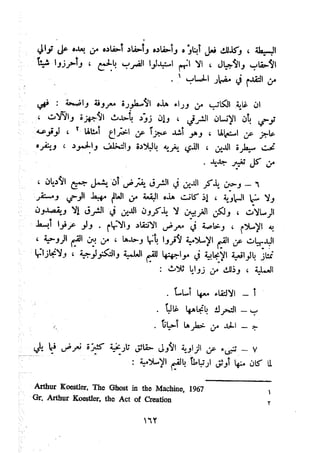 البسيطة ، وكذلك فعل أبناؤه من بعده على توالي
الأحقاب والأجيال ، الا انهم استبدلوا الضرب بالجمع ، وأحرزوا شيئاً
من التقدم في مضمار الحساب ١ .
ان غاية الكاتب من وراء هذه الأسطورة معروفة واضحة : فهي
توحي بأن الانسان الشرقي ، وان زوّد بأحدث الأجهزة والآلات ،
عاجز عن استعمالها ، وهو أشد عجزاً عن اختراع أمثالها ٢ ، فوقوعه
تحت سيطرة الدين ، الذي يغريه بالبلادة والتخلف والجمود ، وينفره
من كل تغير جديد .
٦ — وحين يذكر الدين في الشرق يفترض أن يشمل جميع الأديان ،
ولا سيما السماوية ، إذ كانت هذه البقعة من العالم مهبط الوحي ومستقر
الرسالات ، ولكن الغربيين لا يذكرون الدين في الشرق إلا ويقصدون
به الإسلام ، وخاصة في معرض الانتقاد والاتهام . ولو عرفوا أبسط
البديهيات عن القيم الإسلامية لأقروا بأنها وحدها ، من بين القيم الروحية ،
تمتاز بالواقعية الإيجابية في مواجهتها للقيم العلمية والتكنولوجية ، ولإنجازاتها
العملية ، وذلك من زوايا ثلاث :
أ — الالتقاء معها أساساً .
ب — التحرك باتجاهها غالباً .
ج — الحد من خطرها أحياناً .
٧ — تنبىء عن الزاوية الأولى حقائق تاريخية كثيرة نعرض فيما يلي
لما كان منها أوثق ارتباطاً بالقيم الإسلامية :
Arthur Koestler, The Ghost in the Machine, 1967 ١
Gr, Arthur Koestler, the Act of Creation ٢
١٦٢